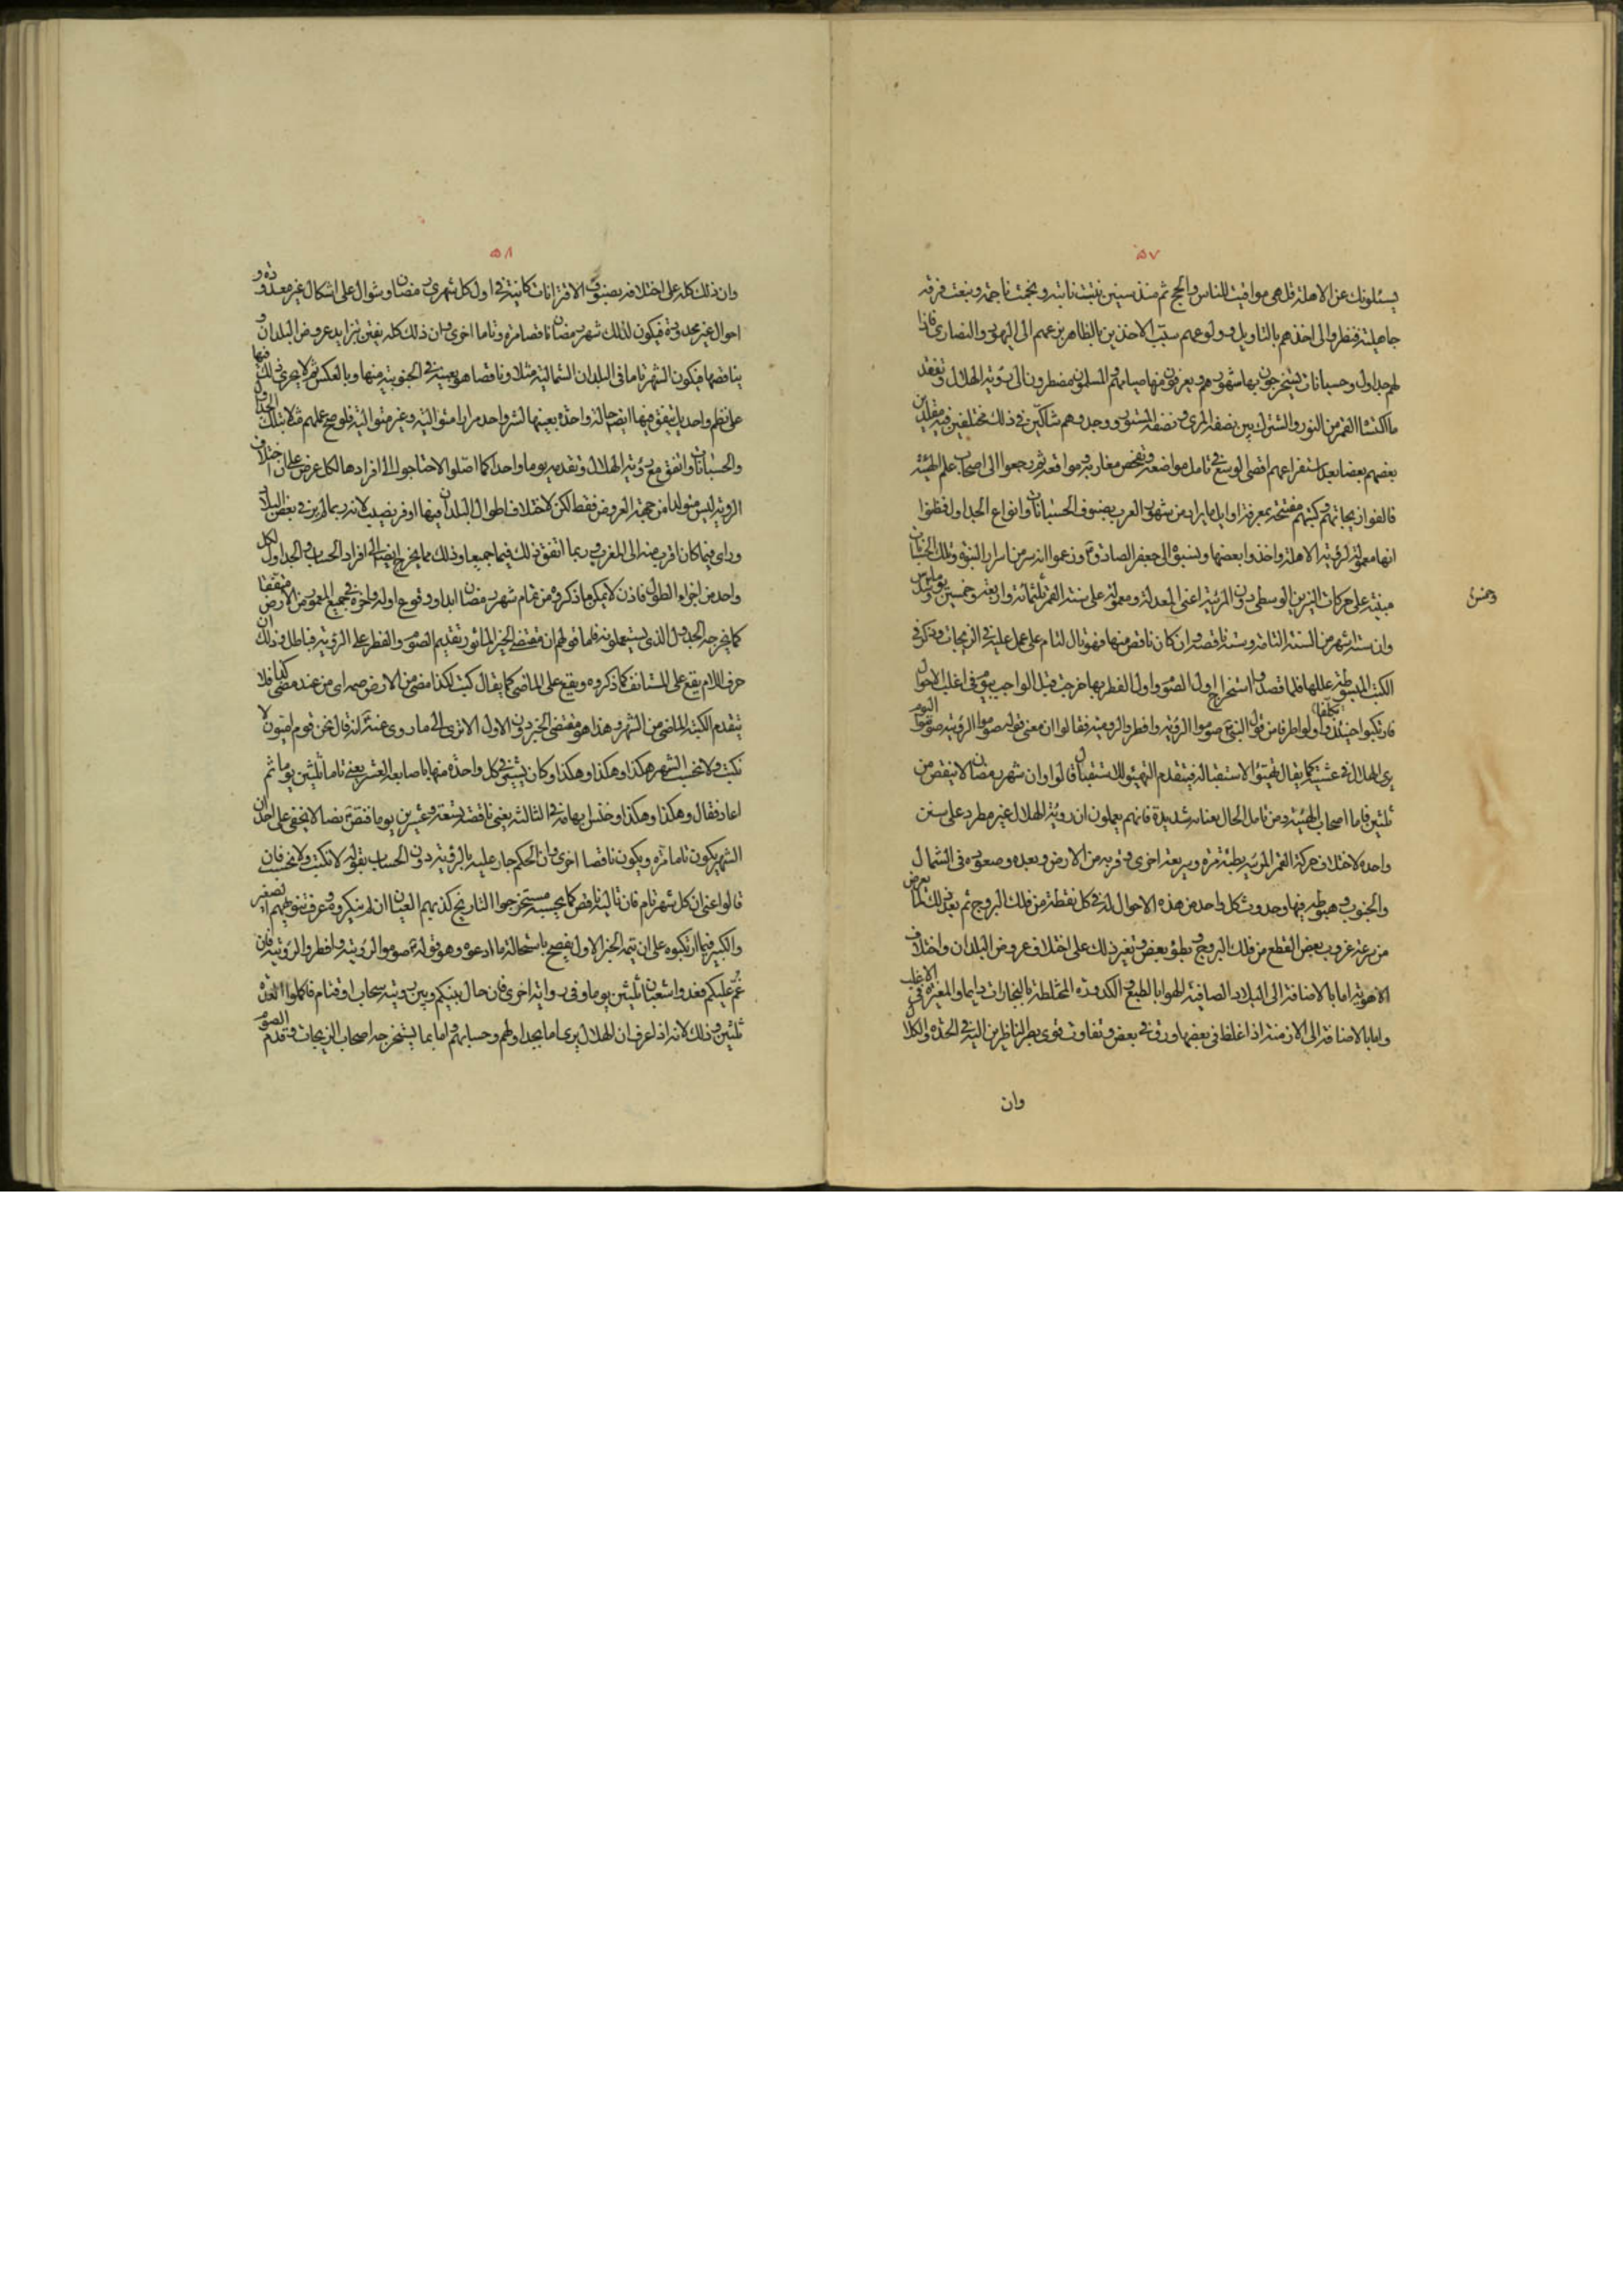 ٥٧
يسئلونك عن الاهلة قل هى مواقيت للناس والحج ثم منذ سنين نبتت نابتة ونجمت ناجمة ونبغت فرقة
جاهلية فنظروا الى اخذهم بالتاويل و ولوعهم سبب الاخذين بالظاهر بزعمهم الى اليهود والنصارى فاذا
لهم جداول وحسبانات يستخرجون بها شهورهم ويعرفون منها صيامهم والمسلمون مضطرون الى رؤية الهلال وتفقد
ما اكتساه القمر من النور واشترك بين نصفه المرى ونصفه المستور ووجدوهم شاكين فى ذلك مختلفين فيه مقلدين
بعضهم بعضا بعد استفراغهم اقصى الوسع فى تامل مواضعه وتفحص مغاربه ومواقعه ثم رجعوا الى اصحاب علم الهيئة
فالفوا زيجاتهم وكتبهم مفتتحة بمعرفة اوايل ما يراد من شهور العرب بصنوف الحسبانات وانواع الجداول فظنوا
انها معمولة لرؤية الاهلة واخذوا بعضها ونسبوه الى جعفر الصادق وزعموا انه سر من اسرار النبوة وتلك الحسبانات
مبنية على حركات النيرين الوسطى دون المرئية اعنى المعدلة ومعمولة على سنة القمر ثلثمائة واربعة وخمسين يوما وسدس
وخمس
وان ستة اشهر من السنة التامة وستة ناقصة وان كان ناقص منها فهو تال لتام على ما عمل عليه فى الزيجات وذكر فى
الكتب المبسوطة عللها فلما قصدوا استخراج اول الصوم واول الفطر بها خرجت قبل الواجب بيوم فى اغلب الاحوال
فارتكبوا حينئذ واولوا طرفا من قول النبى صوموا لرؤيته وافطروا لرؤيته فقالوا ان معنى قوله صوموا لرؤيته صوموا اليوم
يرى الهلال فى عشيته كما يقال تهيئوا لاستقباله فيتقدم التهيئو للاستقبال قالوا وان شهر رمضان لا ينقص من
ثلثين فاما اصحاب الهيئة ومن تامل الحال بعناية شديدة فانهم يعلمون ان روية الهلال غير مطرد على سنن
واحدة لاختلاف حركة القمر المرئية بطيئة مرة وسريعة اخرى وقربه من الارض وبعده وصعوده فى الشمال
والجنوب وهبوطه فيها وحدوث كل واحد من هذه الاحوال له فى كل نقطة من فلك البروج ثم بعد ذلك لما يعرض
من سرعة غروب بعض القطع من فلك البروج وبطؤ بعض وتغير ذلك على اختلاف عروض البلدان واختلاف
الاهوية اما بالاضافة الى البلاد الصافية الهوا بالطبع والكدرة المختلطة بالبخارات دايما والمغبرة فى الاغلب
واما بالاضافة الى الازمنة اذا غلظ فى بعضها ورق فى بعض وتفاوت قوى بصر الناظرين اليه فى الحدة والكلال
وان
٥٨
وان ذلك كله على اختلافه بصنوف الاقترانات كائنة فى اول كل شهرى رمضان وشوال على اشكال غير معدودة و
احوال غير محدودة فيكون لذلك شهر رمضان ناقصا مرة وتاما اخرى وان ذلك كله يفتن بتزايد عروض البلدان و
تناقصها فيكون الشهر تاما فى البلدان الشمالية مثلا وناقصا هو بعينه فى الجنوبية منها وبالعكس ثم لا يجرى ذلك فيها
على نظم واحد بل يتفق فيها ايضا حالة واحدة بعينها لشهر واحد مرارا متوالية وغير متوالية فلو صح عملهم مثلا بتلك الجداول
والحسبانات واتفق مع رؤية الهلال وتقدمه يوما واحدا كما اصلوا لاحتاجوا الى افرادها لكل عرض على ان اختلاف
الروية ليس متولدا من جهة العروض فقط لكن لاختلاف اطوال البلدان فيها اوفر نصيب لانه ربما لم ير فى بعض البلاد
وراى فيما كان اقرب منه الى المغرب وربما اتفق ذلك فيهما جميعا وذلك مما يحوج ايضا الى افراد الحساب والجداول لكل
واحد من اجزاء الطول فاذن لا يمكن ما ذكروه من تمام شهر رمضان ابدا ووقوع اوله واخره فى جميع المعمور من الارض متفقا
كما يخرجه الجدول الذى يستعملونه فاما قولهم ان مقتضى الخبر الماثور تقديم الصوم والفطر على الرؤية فباطل وذلك ان
حرف اللام يقع على المستانف كما ذكروه ويقع على الماضى كما يقال كتب لكذا مضى من الارض صدر اى من عند مضى كذا فلا
يتقدم الكتبة الماضى من الشهر وهذا هو مقتضى الخبر دون الاول الا ترى الى ما روى عنه انه قال نحن قوم اميون لا
نكتب ولا نحسب الشهر هكذا وهكذا وهكذا وكان يشير فى كل واحدة منها باصابعه العشر يعنى تاما ثلثين يوما ثم
اعاد فقال وهكذا وهكذا وهكذا وخنس ابهامه فى الثالثة يعنى ناقصا تسعة وعشرين يوما فنص نصا لا يخفى على احد ان
الشهر يكون تاما مرة ويكون ناقصا اخرى وان الحكم جار عليه بالرؤية دون الحساب بقوله لا نكتب ولا نحسب فان
قالوا عنى ان كل شهر تام فان تاليه ناقص كما يحسبه مستخرجوا التاريخ كذبهم العيان ان لم ينكروه وعرف تمويههم الصغير
والكبير فيما ارتكبوه على ان تتمة الخبر الاول يفصح باستحالة ما ادعوه وهو قوله صوموا لرؤيته وافطروا لرؤيته فان
غم عليكم فعدوا شعبان ثلثين يوما وفى رواية اخرى فان حال بينكم وبين رويته سحاب او قتام فاكملوا العدة
ثلثين وذلك لانه اذا عرف ان الهلال يرى اما بجداولهم وحسابهم واما بما يستخرجه اصحاب الزيجات وقدم الصوم